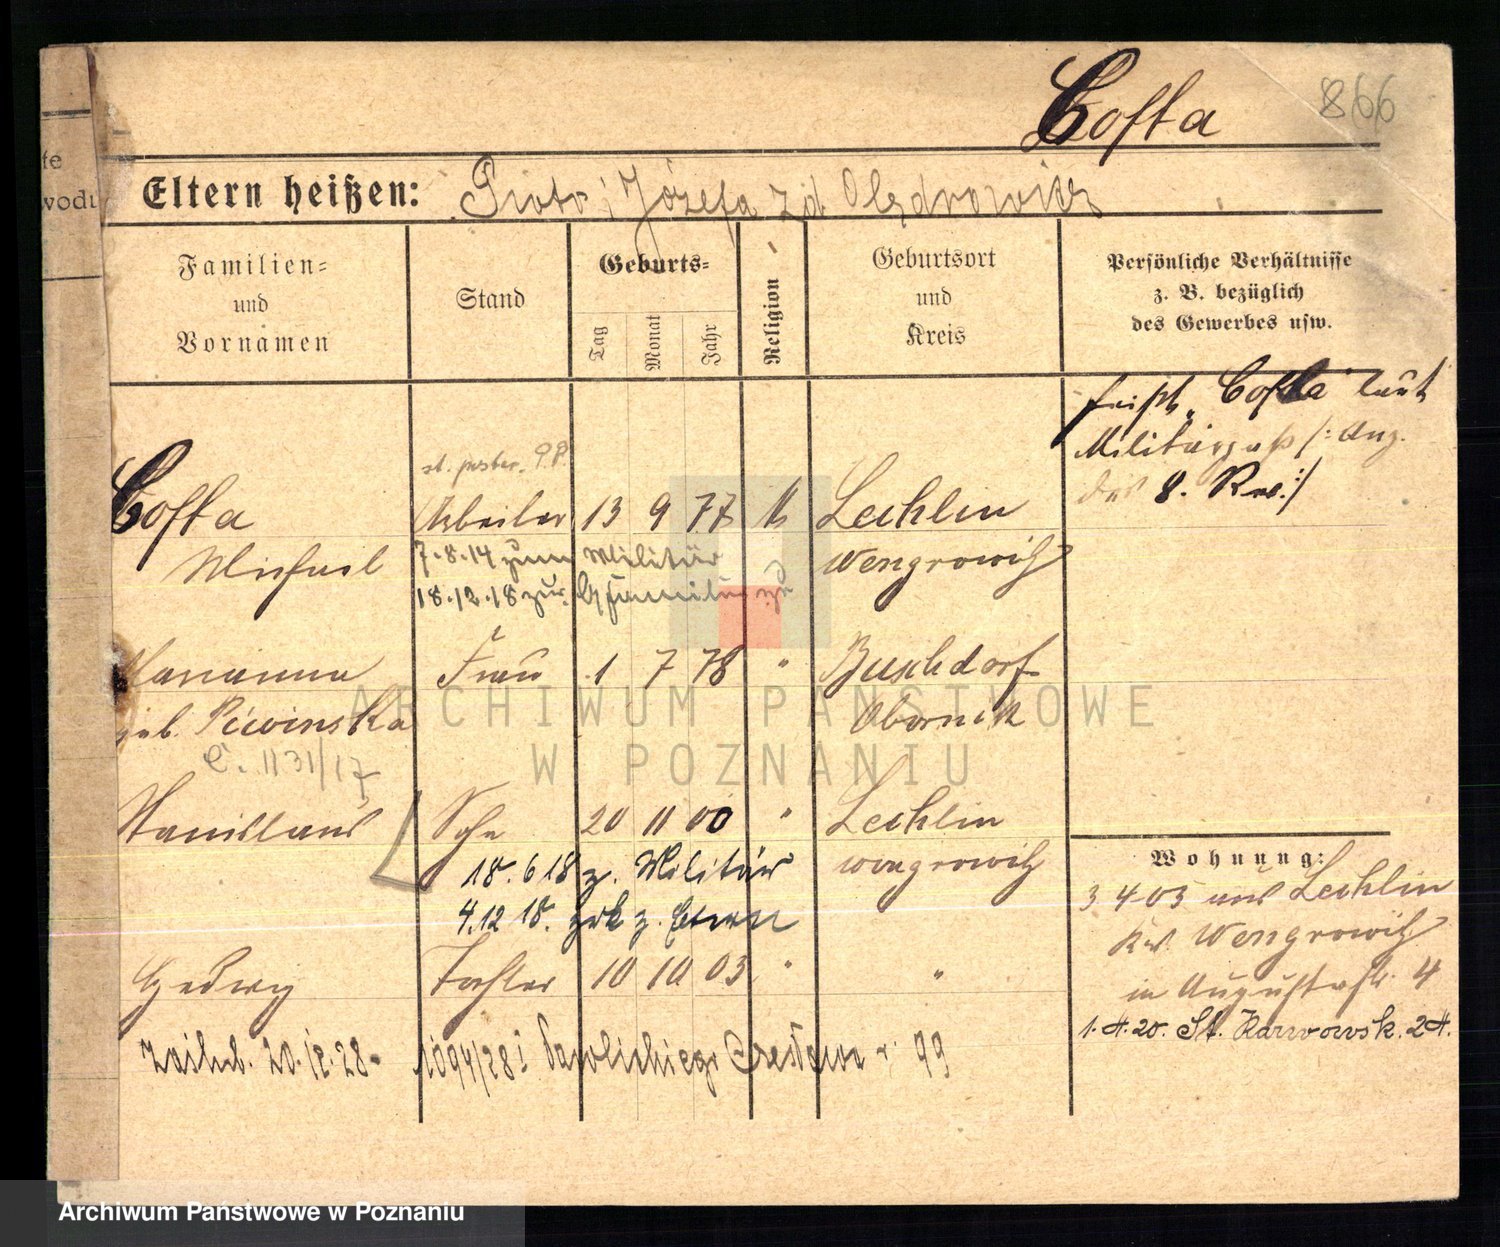 Cofta
866
Eltern heißen: Piotr i Józefa zd Olędrowicz
te
wodu
Familien= und Vornamen
Stand
Geburts=
Tag Monat Jahr
Religion
Geburtsort und Kreis
Persönliche Verhältnisse z. B. bezüglich des Gewerbes usw.
heißt „Cofta" laut
Militärpaß /: Ang.
des 8. Rev. :/
st. poster. P.P.
Cofta Arbeiter 13 9 77 k Lechlin
Michael 7.8.14 zum Militär Wengrowitz
18.12.18 zur. Familie
Marianna Frau 1 7 78 " Buschdorf
geb. Piwinska Obornik
C. 1131/17
Stanislaus Sohn 20 11 00 " Lechlin
18.6.18 z. Militär Wongrowitz
4.12.18. zrk z. Eltern
Hedwig Tochter 10 10 03 " "
zaślub. 20.12.28 1094/28 i Pawlickiego Czesława r. 99
Wohnung:
3 4 03 aus Lechlin
Kr. Wengrowitz
in Augustastr. 4
1.4.20. St. Karwowsk. 24.
ARCHIWUM PAŃSTWOWE
W POZNANIU
Archiwum Państwowe w Poznaniu